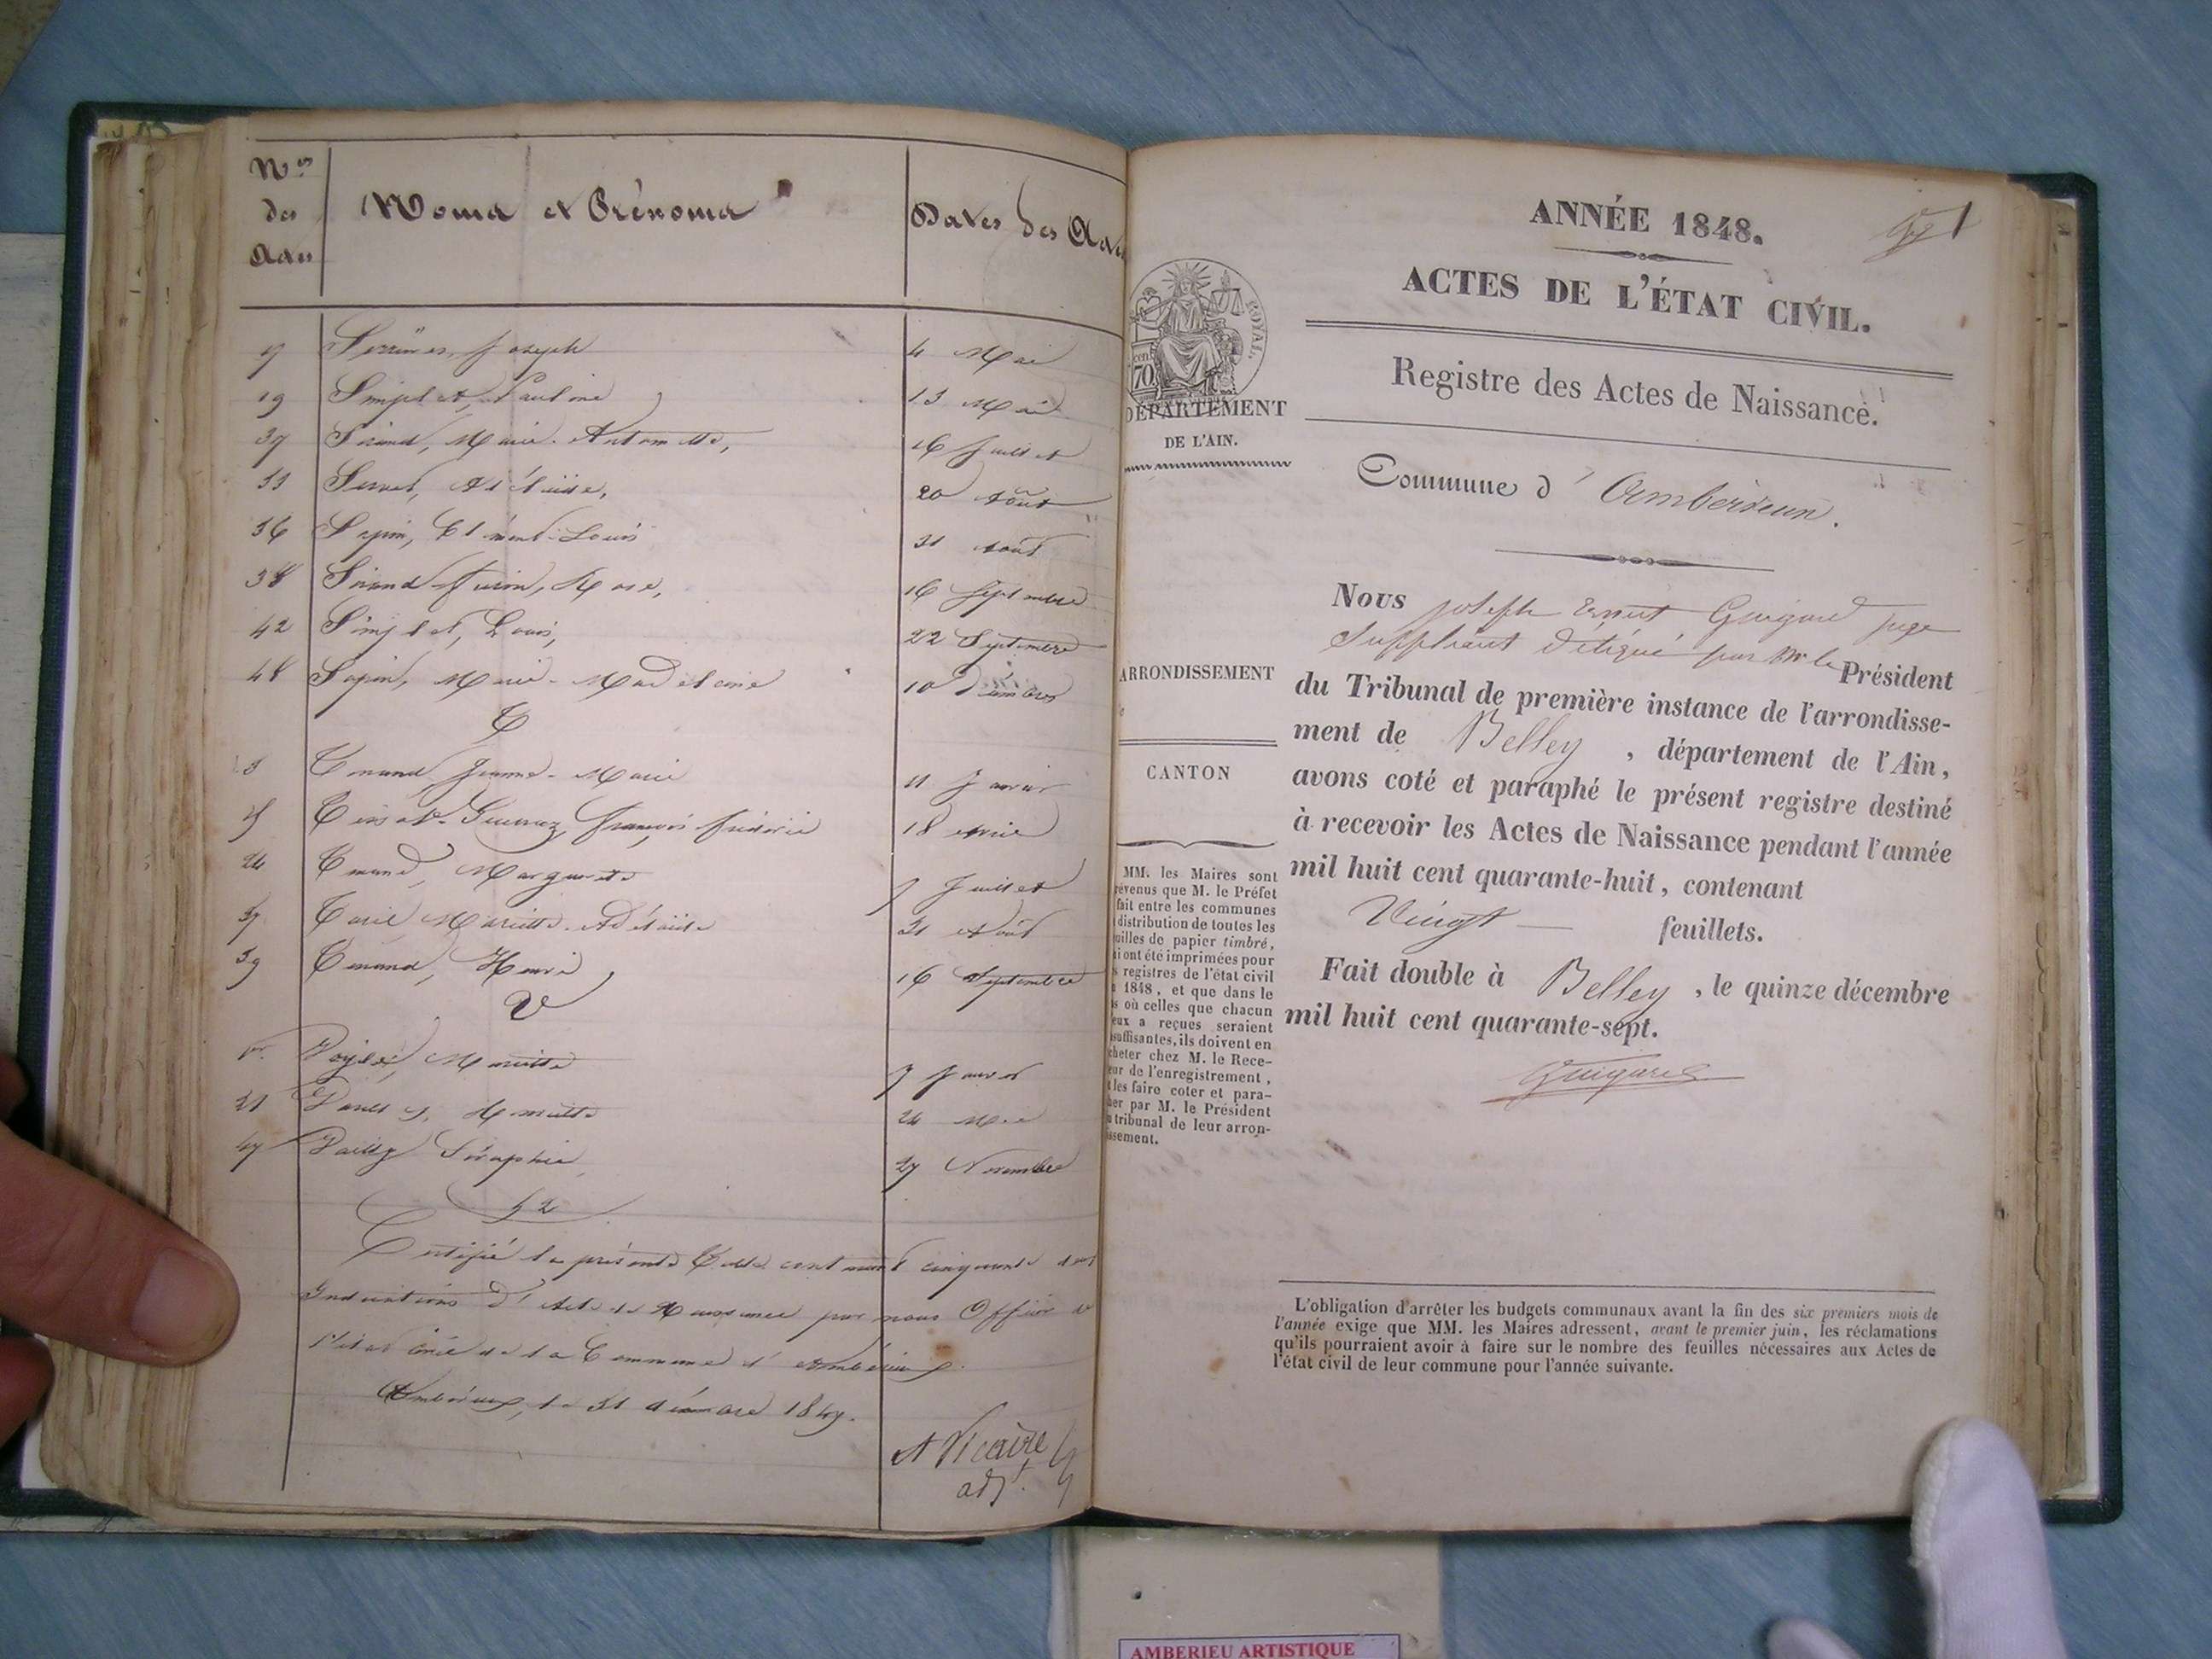 Nos des Actes
Noms et Prénoms
Dates des Actes
Joseph
4 Mai
19 Simplet, Pauline
13 Mai
Sirand, Marie-Antoinette,
16 Juillet
33 Servet, Adélaïde,
20 Août
36 Sapin, Clément-Louis
31 Août
38 Sirand Rose,
16 Septembre
42 Simplet, Louis,
22 Septembre
48 Sapin, Marie-Madeleine
10 Décembre
T
3 Tenand Jeanne-Marie
11 Janvier
François Frédéric
18
24 Tenand, Marguerite
7 Juillet
37 Mariette-Adélaïde
31 Août
39 Tenand, Henri
16 Septembre
V
1er Mariette
7 Janvier
21
24 Mai
47 Séraphie
27 Novembre
52
Certifié la présente Table contenant cinquante deux
Indications d'Acte de Naissance par nous Officier de
l'état civil de la Commune d'Ambérieux.
Ambérieux, le 31 décembre 1847.
A Vicaire
adjt.
1
ANNÉE 1848.
ACTES DE L'ÉTAT CIVIL.
ROYAL.
cent
70
DÉPARTEMENT
DE L'AIN.
Registre des Actes de Naissance.
Commune d'Ambérieux.
Nous joseph Ernest Guigard juge
Suppléant délégué par Mr le Président
du Tribunal de première instance de l'arrondisse-
ment de Belley, département de l'Ain,
avons coté et paraphé le présent registre destiné
à recevoir les Actes de Naissance pendant l'année
mil huit cent quarante-huit, contenant
Vingt feuillets.
Fait double à Belley, le quinze décembre
mil huit cent quarante-sept.
Guigard
ARRONDISSEMENT
CANTON
MM. les Maires sont
révenus que M. le Préfet
fait entre les communes
distribution de toutes les
uilles de papier timbré,
i ont été imprimées pour
s registres de l'état civil
1848, et que dans le
s où celles que chacun
eux a reçues seraient
suffisantes, ils doivent en
cheter chez M. le Rece-
ur de l'enregistrement,
les faire coter et para-
her par M. le Président
tribunal de leur arron-
issement.
L'obligation d'arrêter les budgets communaux avant la fin des six premiers mois de
l'année exige que MM. les Maires adressent, avant le premier juin, les réclamations
qu'ils pourraient avoir à faire sur le nombre des feuilles nécessaires aux Actes de
l'état civil de leur commune pour l'année suivante.
AMBERIEU ARTISTIQUE